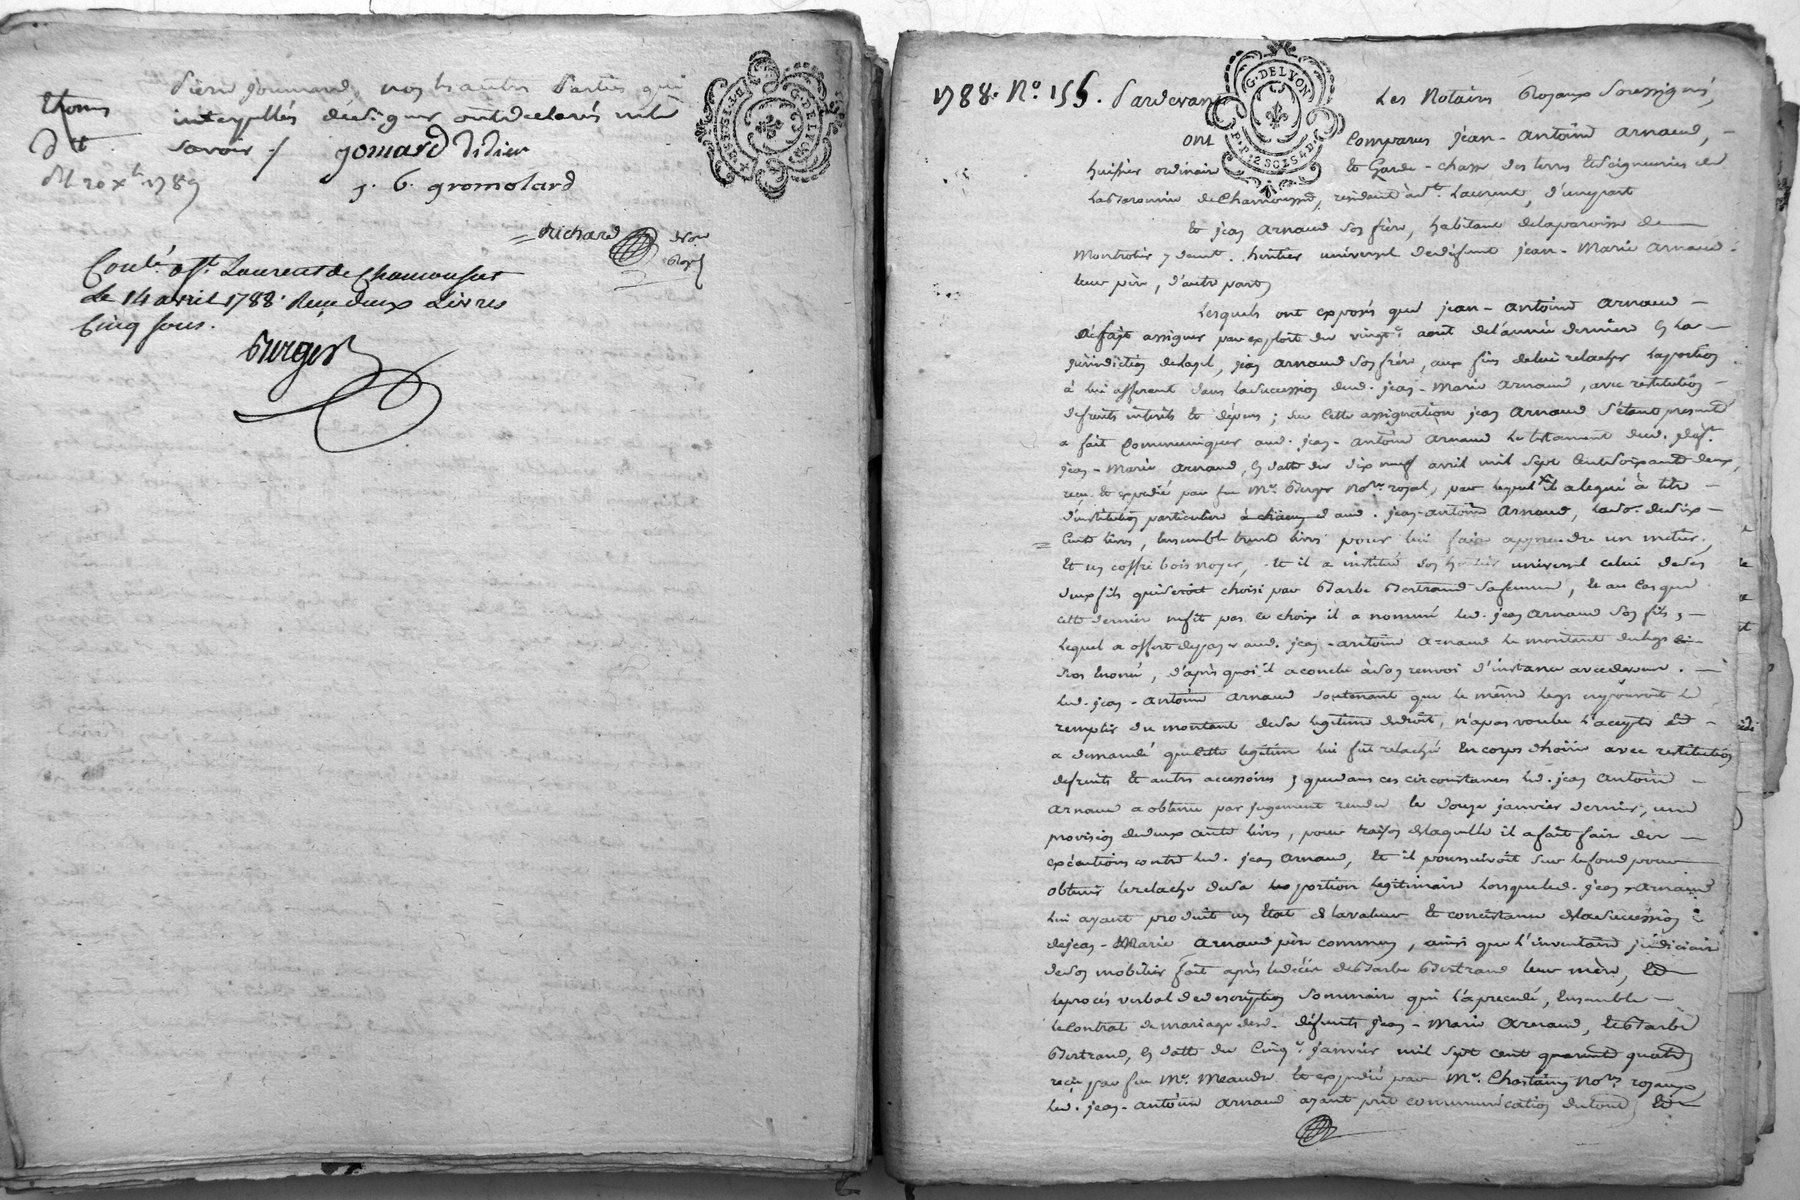 pierre jomard nos hautres parties, qui
interpellés de signer ont déclarés ne le
savoir ./. jomard Didier
j. b. gromolard
dél. 20 xbre 1789
G. DE LYON
Richard
Roy.
Conlé. à St. Laurent de Chamousset
Le 14 avril 1788. Reçu deux Livres
Cinq sous.
Burger
1788. No. 155. Pardevant Les Notaires Royaux Soussignés,
G. DE LYON
P. P. 2 SOLS 4 D.
ont Comparus jean-antoine arnaud, -
huissier ordinaire et Garde-chasse des terres et Seigneuries de
la Baronnie de Chamousset, residant à St. Laurent, d'une part
Et jean arnaud son frère, habitant de la paroisse de
Montrotier y deme. héritier universel de défunt jean-Marie arnaud
leur père, d'autre part
Lesquels ont exposés que jean-antoine arnaud -
a fait assigner par exploit du vingt août de l'année dernière en la -
jurisdiction de , jean arnaud son frère, aux fins de lui relacher la portion
à lui afferente dans la succession dud. jean-Marie arnaud, avec restitution -
de fruits interets et dépens; sur cette assignation jean arnaud s'étant presenté
a fait Communiquer aud. jean-antoine arnaud le testament dud. déft.
jean-Marie arnaud, en datte du dix neuf avril mil sept Cent soixante deux,
reçu et expédié par feu Me. Burger Nore. royal, par lequel il a legué à titre -
d'institution particulière à chacun d aud. jean-antoine arnaud, la so. de six -
Cents livres, Ensemble trente livres pour lui faire apprendre un métier,
Et un coffre bois noyer, et il a institué son héritier universel celui de ses
deux fils qui seroit choisi par Barbe Bertrand sa femme, et au Cas que
cette dernière ne fit pas ce choix il a nommé led. jean arnaud son fils, -
lequel a offert de payer aud. jean-antoine arnaud le montant du legs ci-
dessus Enoncé, d'après quoi il a conclu à son renvoi d'instance avec dépens. -
led. jean-antoine arnaud soutenant que le même legs ne pouvoit le
remplir du montant de sa legitime de droit, n'a pas voulu l'accepter et -
a demandé que cette legitime lui fut relachée En corps d'hoirie avec restitution
de fruits et autres accessoires; que dans ces circonstances led. jean antoine -
arnaud a obtenu par jugement rendu le douze janvier dernier, une
provision de deux cents livres, pour raison de laquelle il a fait faire des -
exécutions contre led. jean arnaud, Et il poursuivoit sur le fond pour
obtenir le relache de sa portion legitimaire lorsque led. jean arnaud
lui ayant produit un Etat de la valeur et consistance de la succession
de jean-Marie arnaud père commun, ainsi que l'inventaire judiciaire
de son mobilier fait après le décès de Barbe Bertrand leur mère, et
le procès verbal de description sommaire qui l'a precedé, Ensemble -
le Contrat de mariage desd. défunts jean-Marie arnaud, et Barbe
Bertrand, en datte du Cinq janvier mil sept cent quarante quatre
reçu par feu Me. Meaudre et expédié par Me. Chastaing Nores. royaux,
led. jean-antoine arnaud ayant prit communication du tout, et